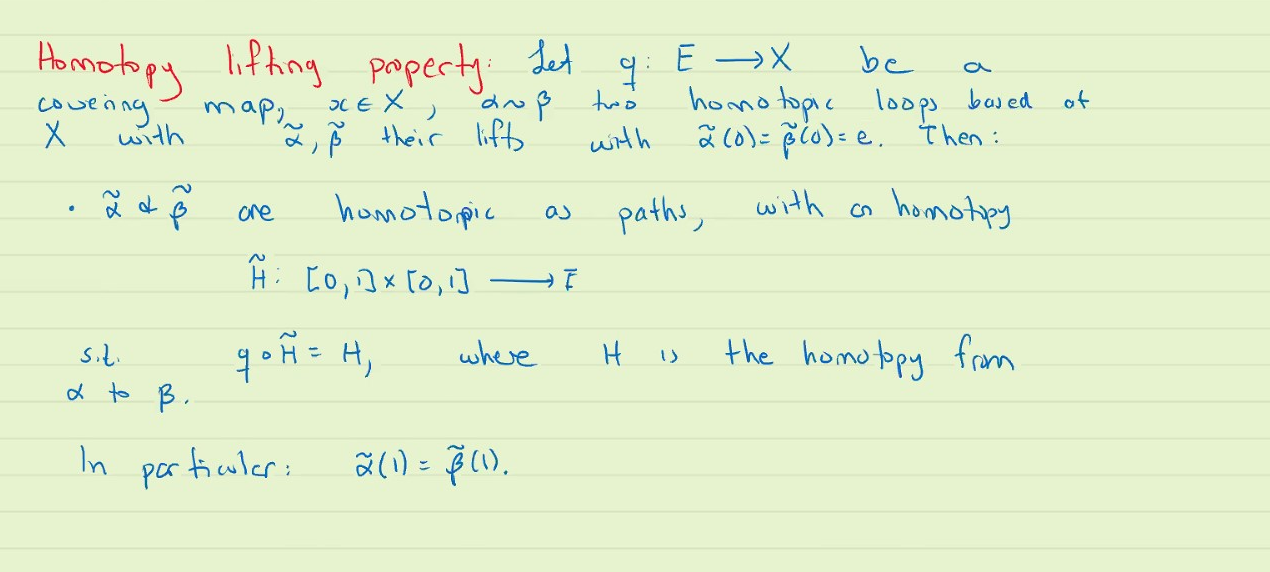 Homotopy lifting property: Let q: E → X be a
covering map, x ∈ X, α ~ β two homotopic loops based at
X with α̃, β̃ their lifts with α̃(0) = β̃(0) = e. Then:
• α̃ & β̃ are homotopic as paths, with a homotopy
H̃: [0,1] × [0,1] → E
s.t. q ∘ H̃ = H, where H is the homotopy from
α to β.
In particular: α̃(1) = β̃(1).